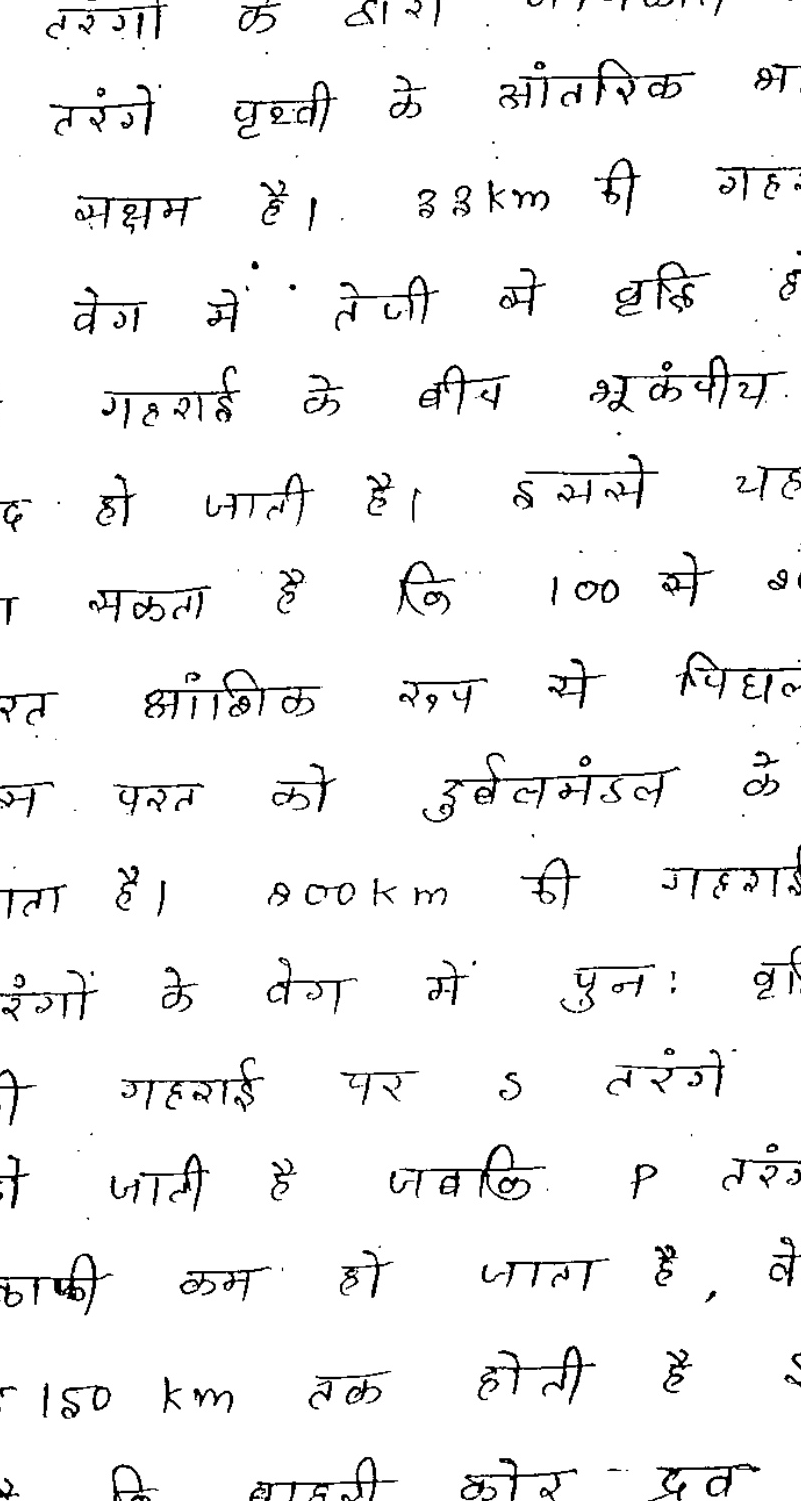 तरंगों के द्वारा
तरंगें पृथ्वी के आंतरिक
सक्षम है। 33km की
वेग में तेजी से वृद्धि
गहराई के बीच भूकंपीय
हो जाती है। इससे यह
सकता है कि 100 से
आंशिक रूप से
परत को दुर्बलमंडल के
है। 200km की गहराई
के वेग में पुनः
गहराई पर S तरंगें
जाती है जबकि P
काफी कम हो जाता है,
150 km तक होती है
कि बाहरी कोर द्रव